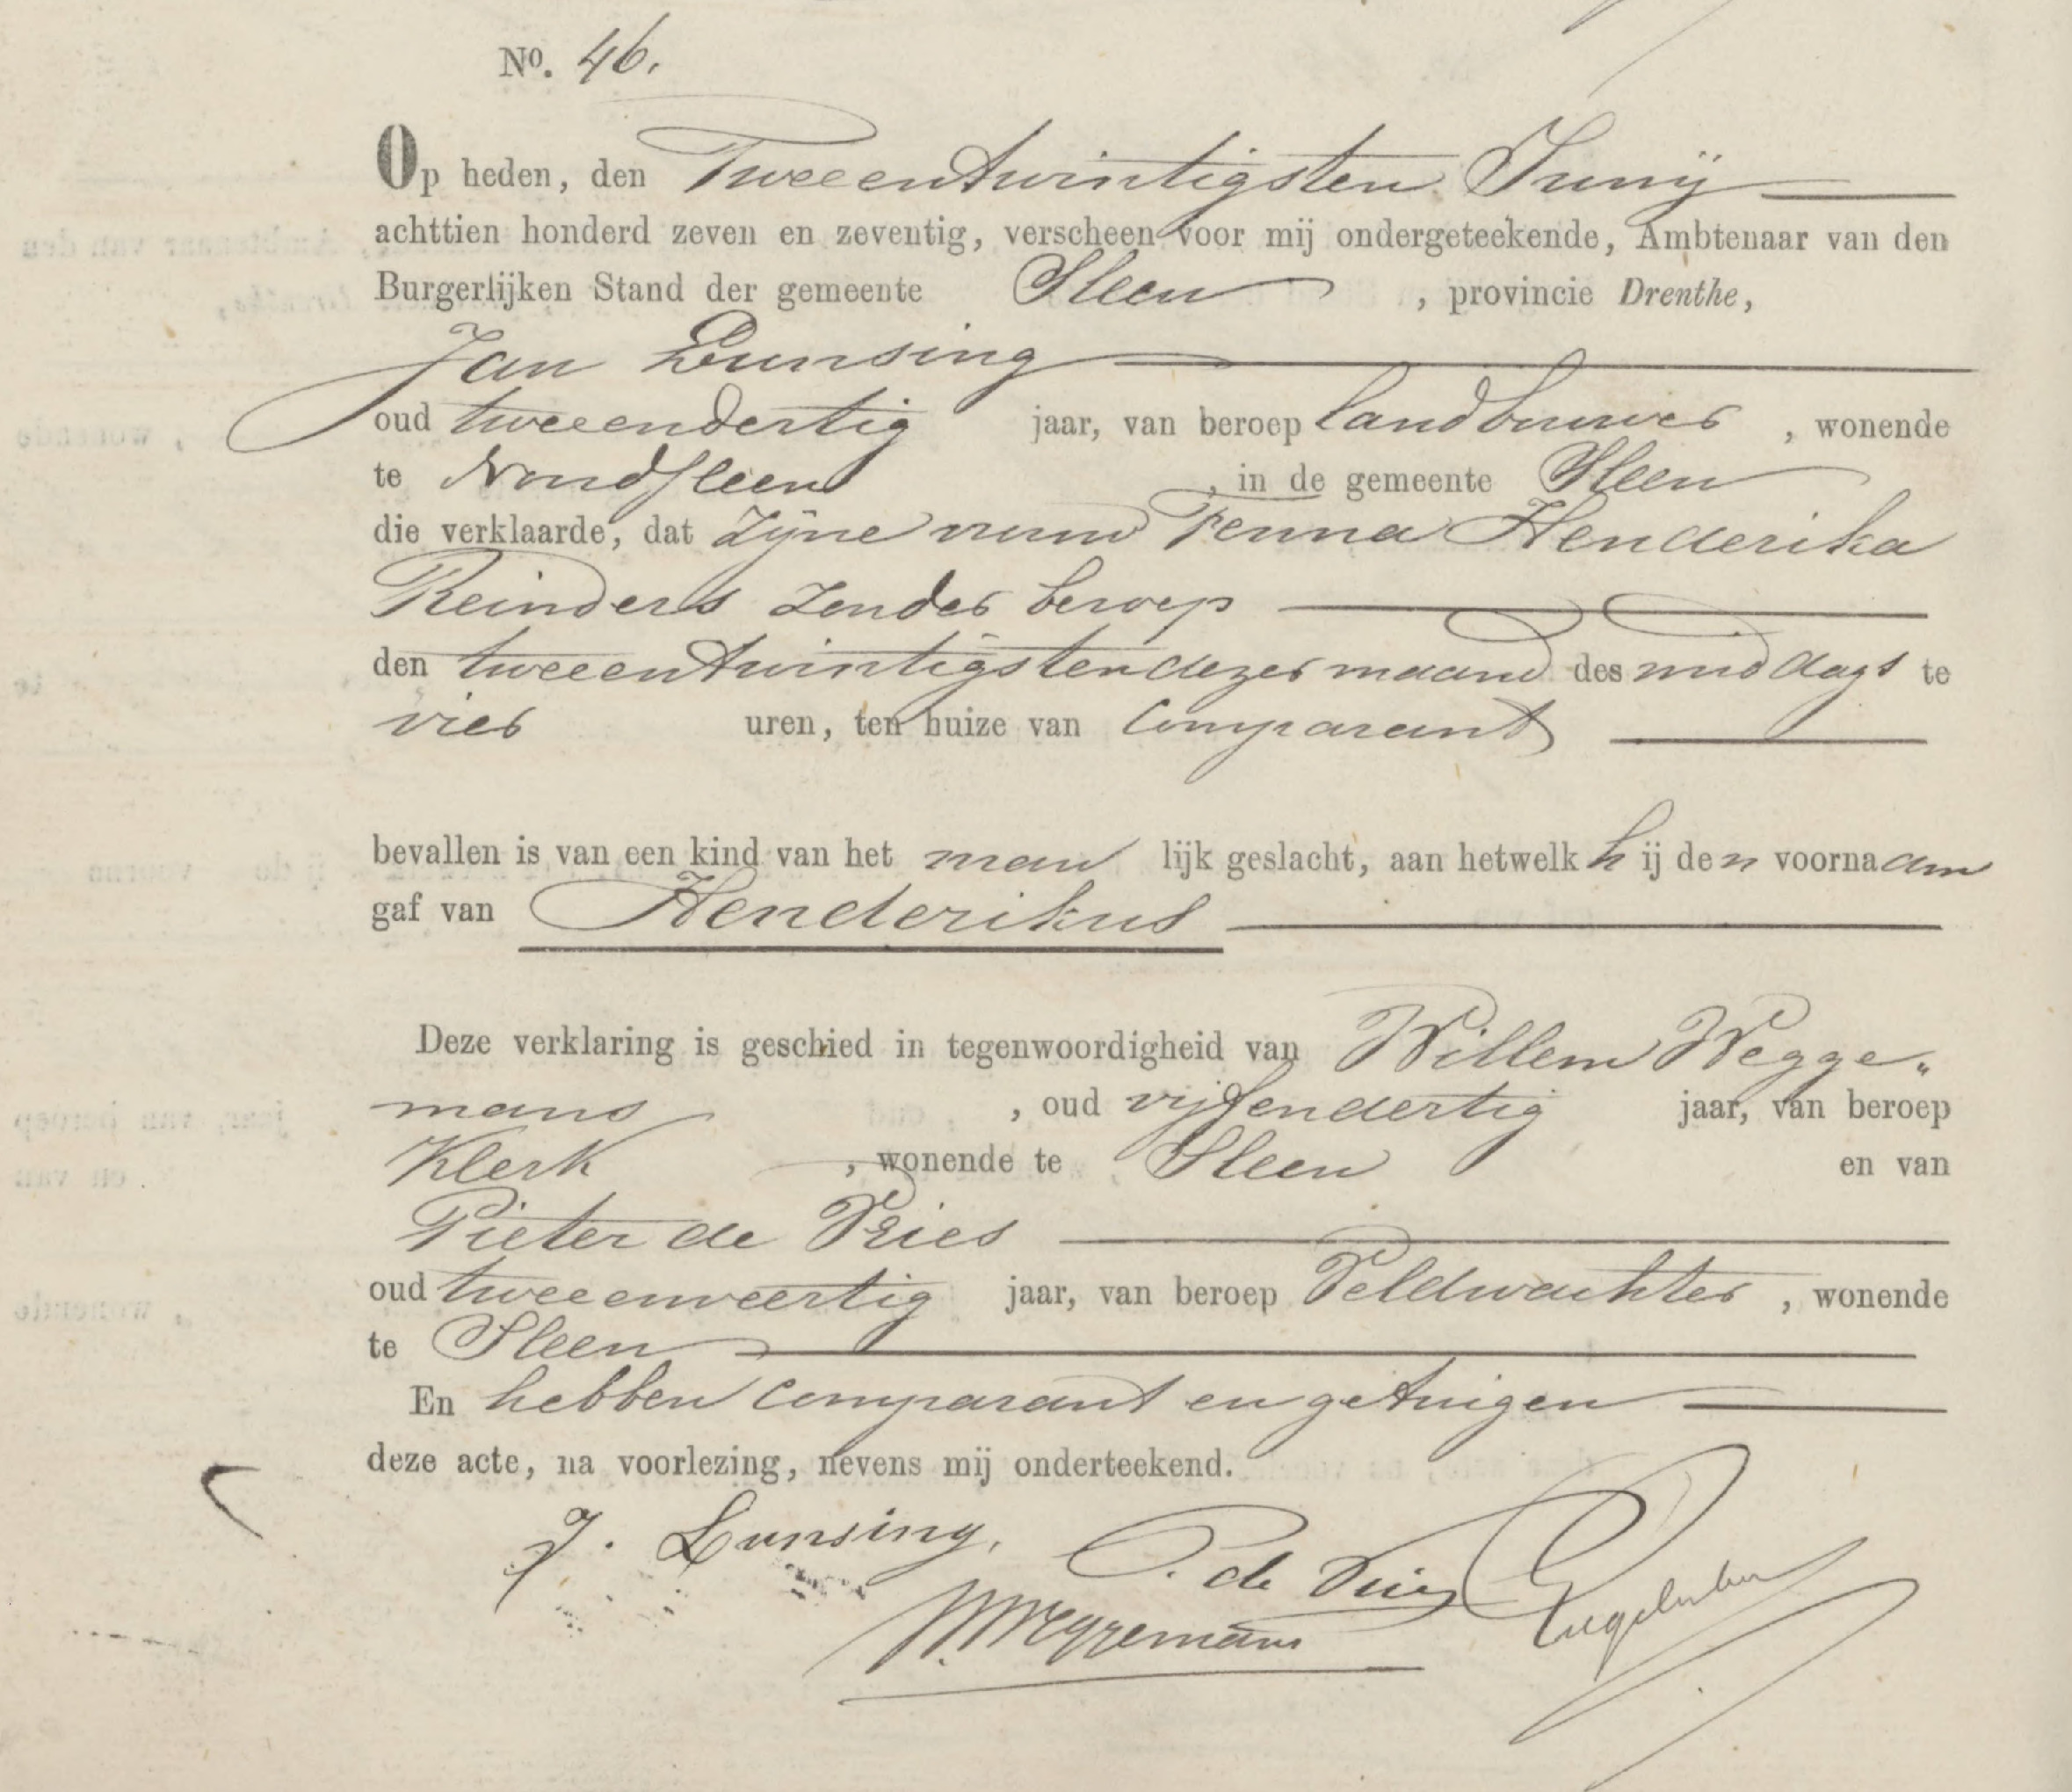 No. 46.
Op heden, den Tweeentwintigsten Junij
achttien honderd zeven en zeventig, verscheen voor mij ondergeteekende, Ambtenaar van den
Burgerlijken Stand der gemeente Sleen, provincie Drenthe,
Jan Lunsing
oud tweeendertig jaar, van beroep landbouwer, wonende
te Noordsleen, in de gemeente Sleen
die verklaarde, dat zijne vrouw Fenna Henderika
Reinders zonder beroep
den tweeentwintigsten dezer maand des middags te
vier uren, ten huize van Comparant
bevallen is van een kind van het man lijk geslacht, aan hetwelk h ij den voornaam
gaf van Henderikus
Deze verklaring is geschied in tegenwoordigheid van Willem Wegge„
mans, oud vijfendertig jaar, van beroep
Klerk, wonende te Sleen en van
Pieter de Vries
oud tweeenveertig jaar, van beroep Veldwachter, wonende
te Sleen
En hebben Comparant en getuigen
deze acte, na voorlezing, nevens mij onderteekend.
J. Lunsing,
P. de Vries
W. Weggemans